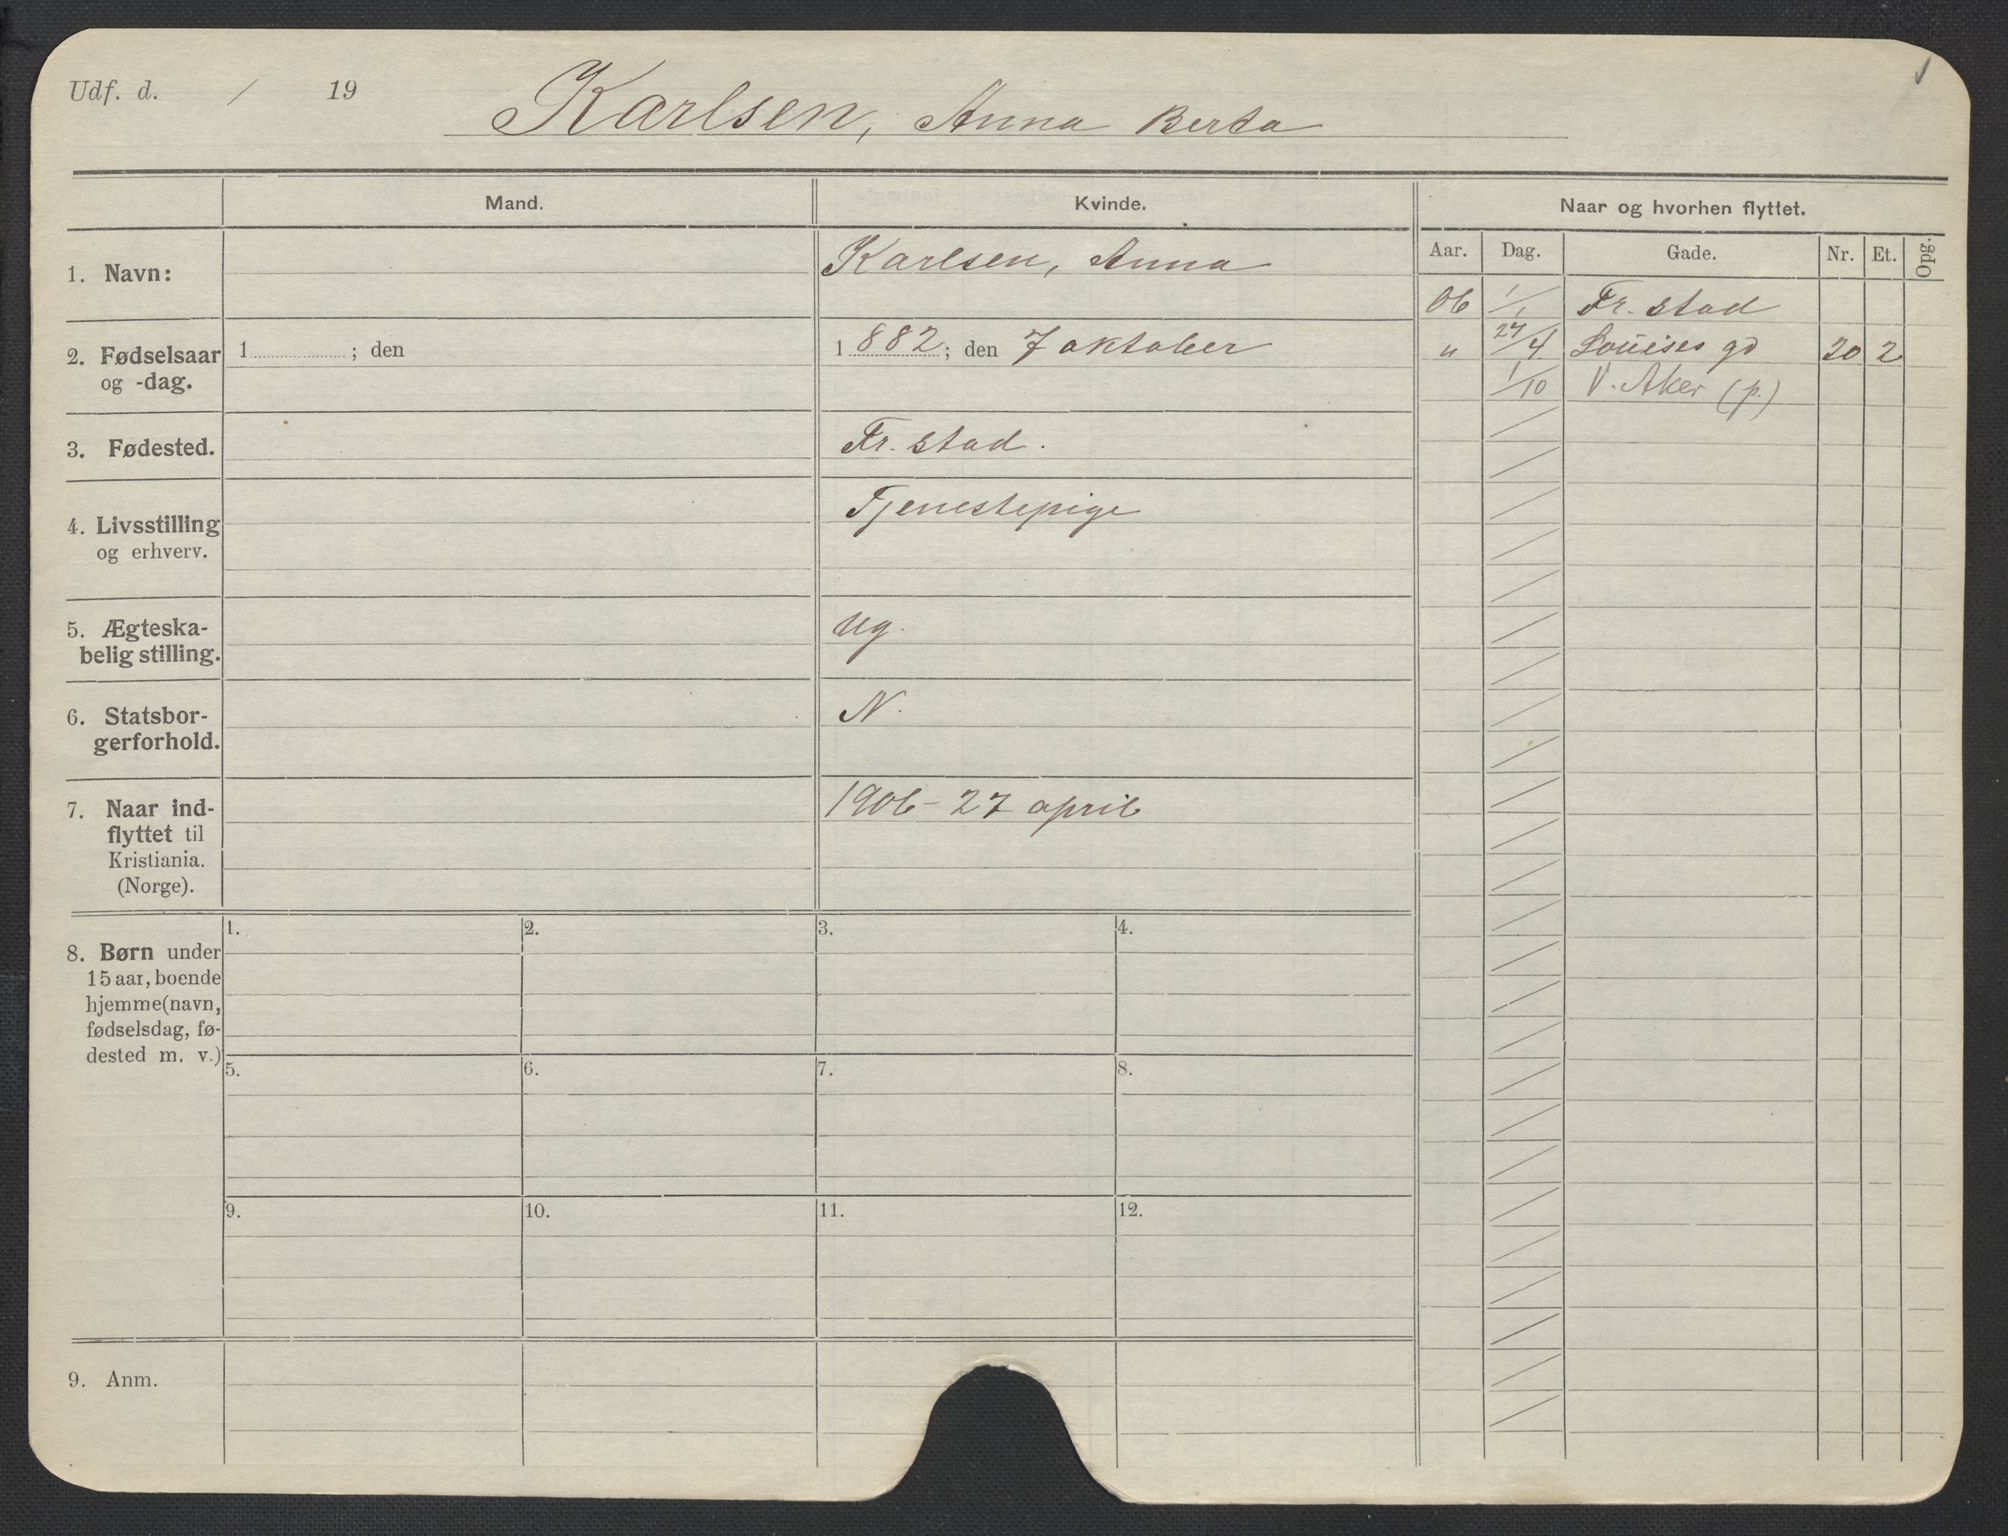 Udf. d. / 19 Karlsen, Anna Berta
Mand. Kvinde. Naar og hvorhen flyttet.
Aar. Dag. Gade. Nr. Et. Opg.
1. Navn: Karlsen, Anna
06 1/1 Fr. stad
2. Fødselsaar 1 ; den 1 882 ; den 7 oktober
og -dag.
" 27/4 Louises gd 20 2
1/10 V. Aker (p.)
3. Fødested. Fr. stad.
4. Livsstilling Tjenestepige
og erhverv.
5. Ægteska-
belig stilling. ug.
6. Statsbor- N.
gerforhold.
7. Naar ind- 1906 - 27 april
flyttet til
Kristiania.
(Norge).
8. Børn under
15 aar, boende
hjemme (navn,
fødselsdag, fø-
dested m. v.)
1. 2. 3. 4.
5. 6. 7. 8.
9. 10. 11. 12.
9. Anm.